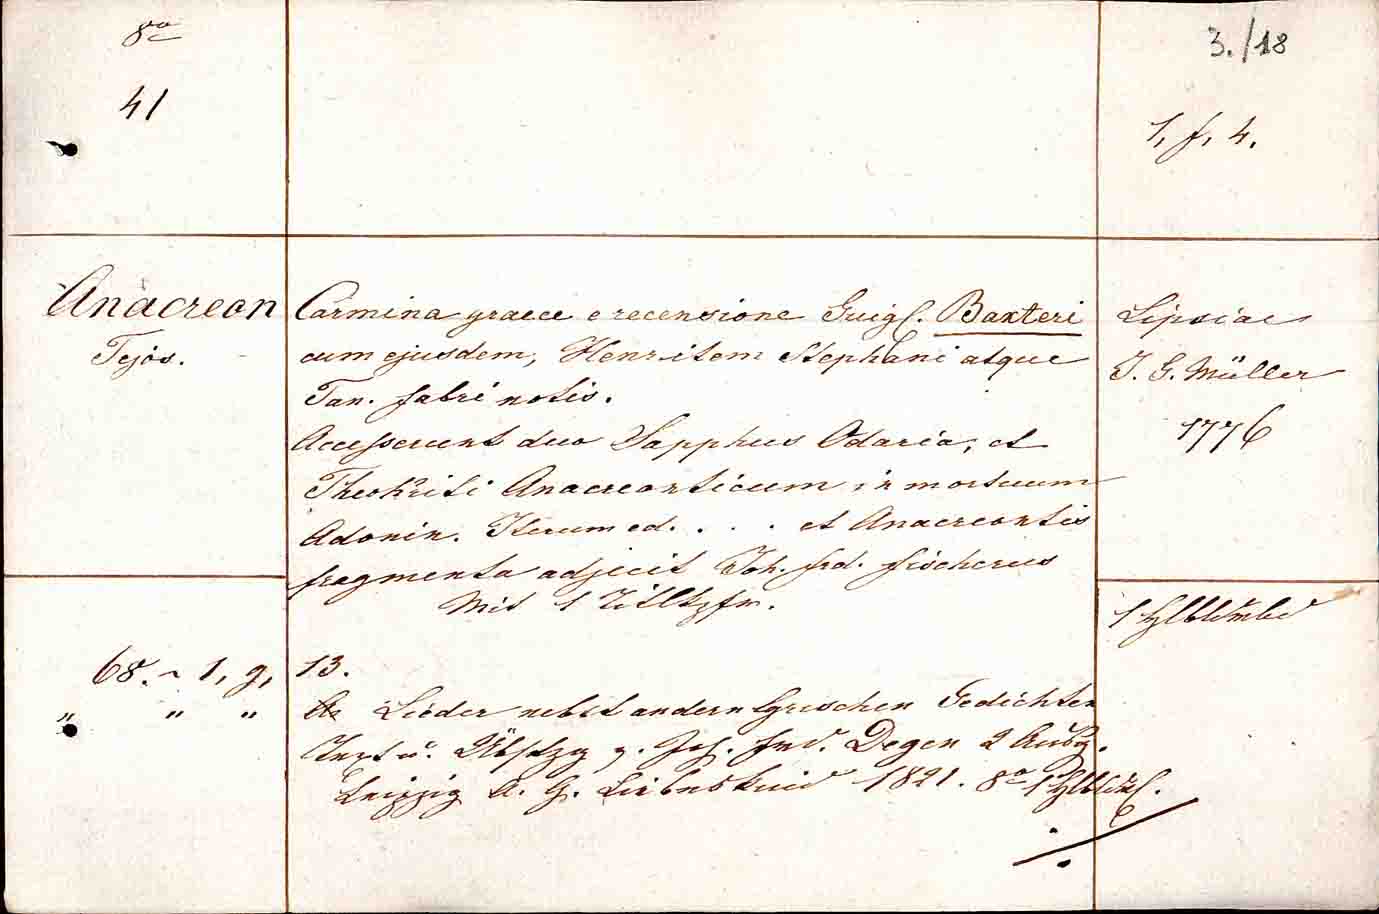 8o
41
3./18
1, f, 4.
Anacreon
Tejos.
Carmina graece e recensione Guigl. Baxteri
cum ejusdem, Henr. item Stephani atque
Tan. fabri notis.
Accesserunt duo Sapphus Odaria, et
Theokriti Anacreonticum in mortuum
Adonin. Iterum ed. . . . et Anacreontis
fragmenta adjecit Joh. frd. fischerus
Mit 1 Titlkpfr.
Lipsiae
J. G. Müller
1776
1 Hlbldrbd
68. ~ 1, g, 13.
" " "
Lieder nebst andern lyrischen Gedichten
Text u. Übstzg v. Joh. frd. Degen 2 Ausg.
Leipzig A. G. Liebeskind 1821. 8o 1